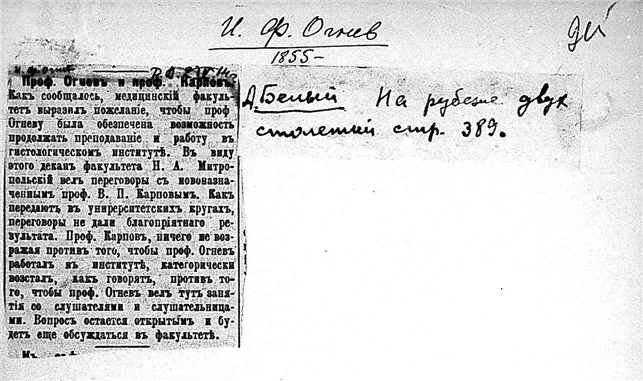 И. Ф. Огнев
1855–
Проф. Огневъ и проф. Карповъ.
Какъ сообщалось, медицинскій факуль-
тетъ выразилъ пожеланіе, чтобы проф
Огневу была обезпечена возможность
продолжать преподаваніе и работу въ
гистологическомъ институтѣ. Въ виду
этого деканъ факультета Н. А. Митро-
польскій велъ переговоры съ новоназна-
ченнымъ проф. В. П. Карповымъ. Какъ
передаютъ въ унирерситетскихъ кругахъ,
переговоры не дали благопріятнаго ре-
зультата. Проф. Карповъ, ничего не воз-
ражая противъ того, чтобы проф. Огневъ
работалъ въ институтѣ, категорически
возсталъ, какъ говорятъ, противъ то-
го, чтобы проф. Огневъ велъ тутъ заня-
тія со слушателями и слушательница-
ми. Вопросъ остается открытымъ и бу-
детъ еще обсуждаться въ факультетѣ.
А. Белый На рубеже двух
столетий стр. 389.